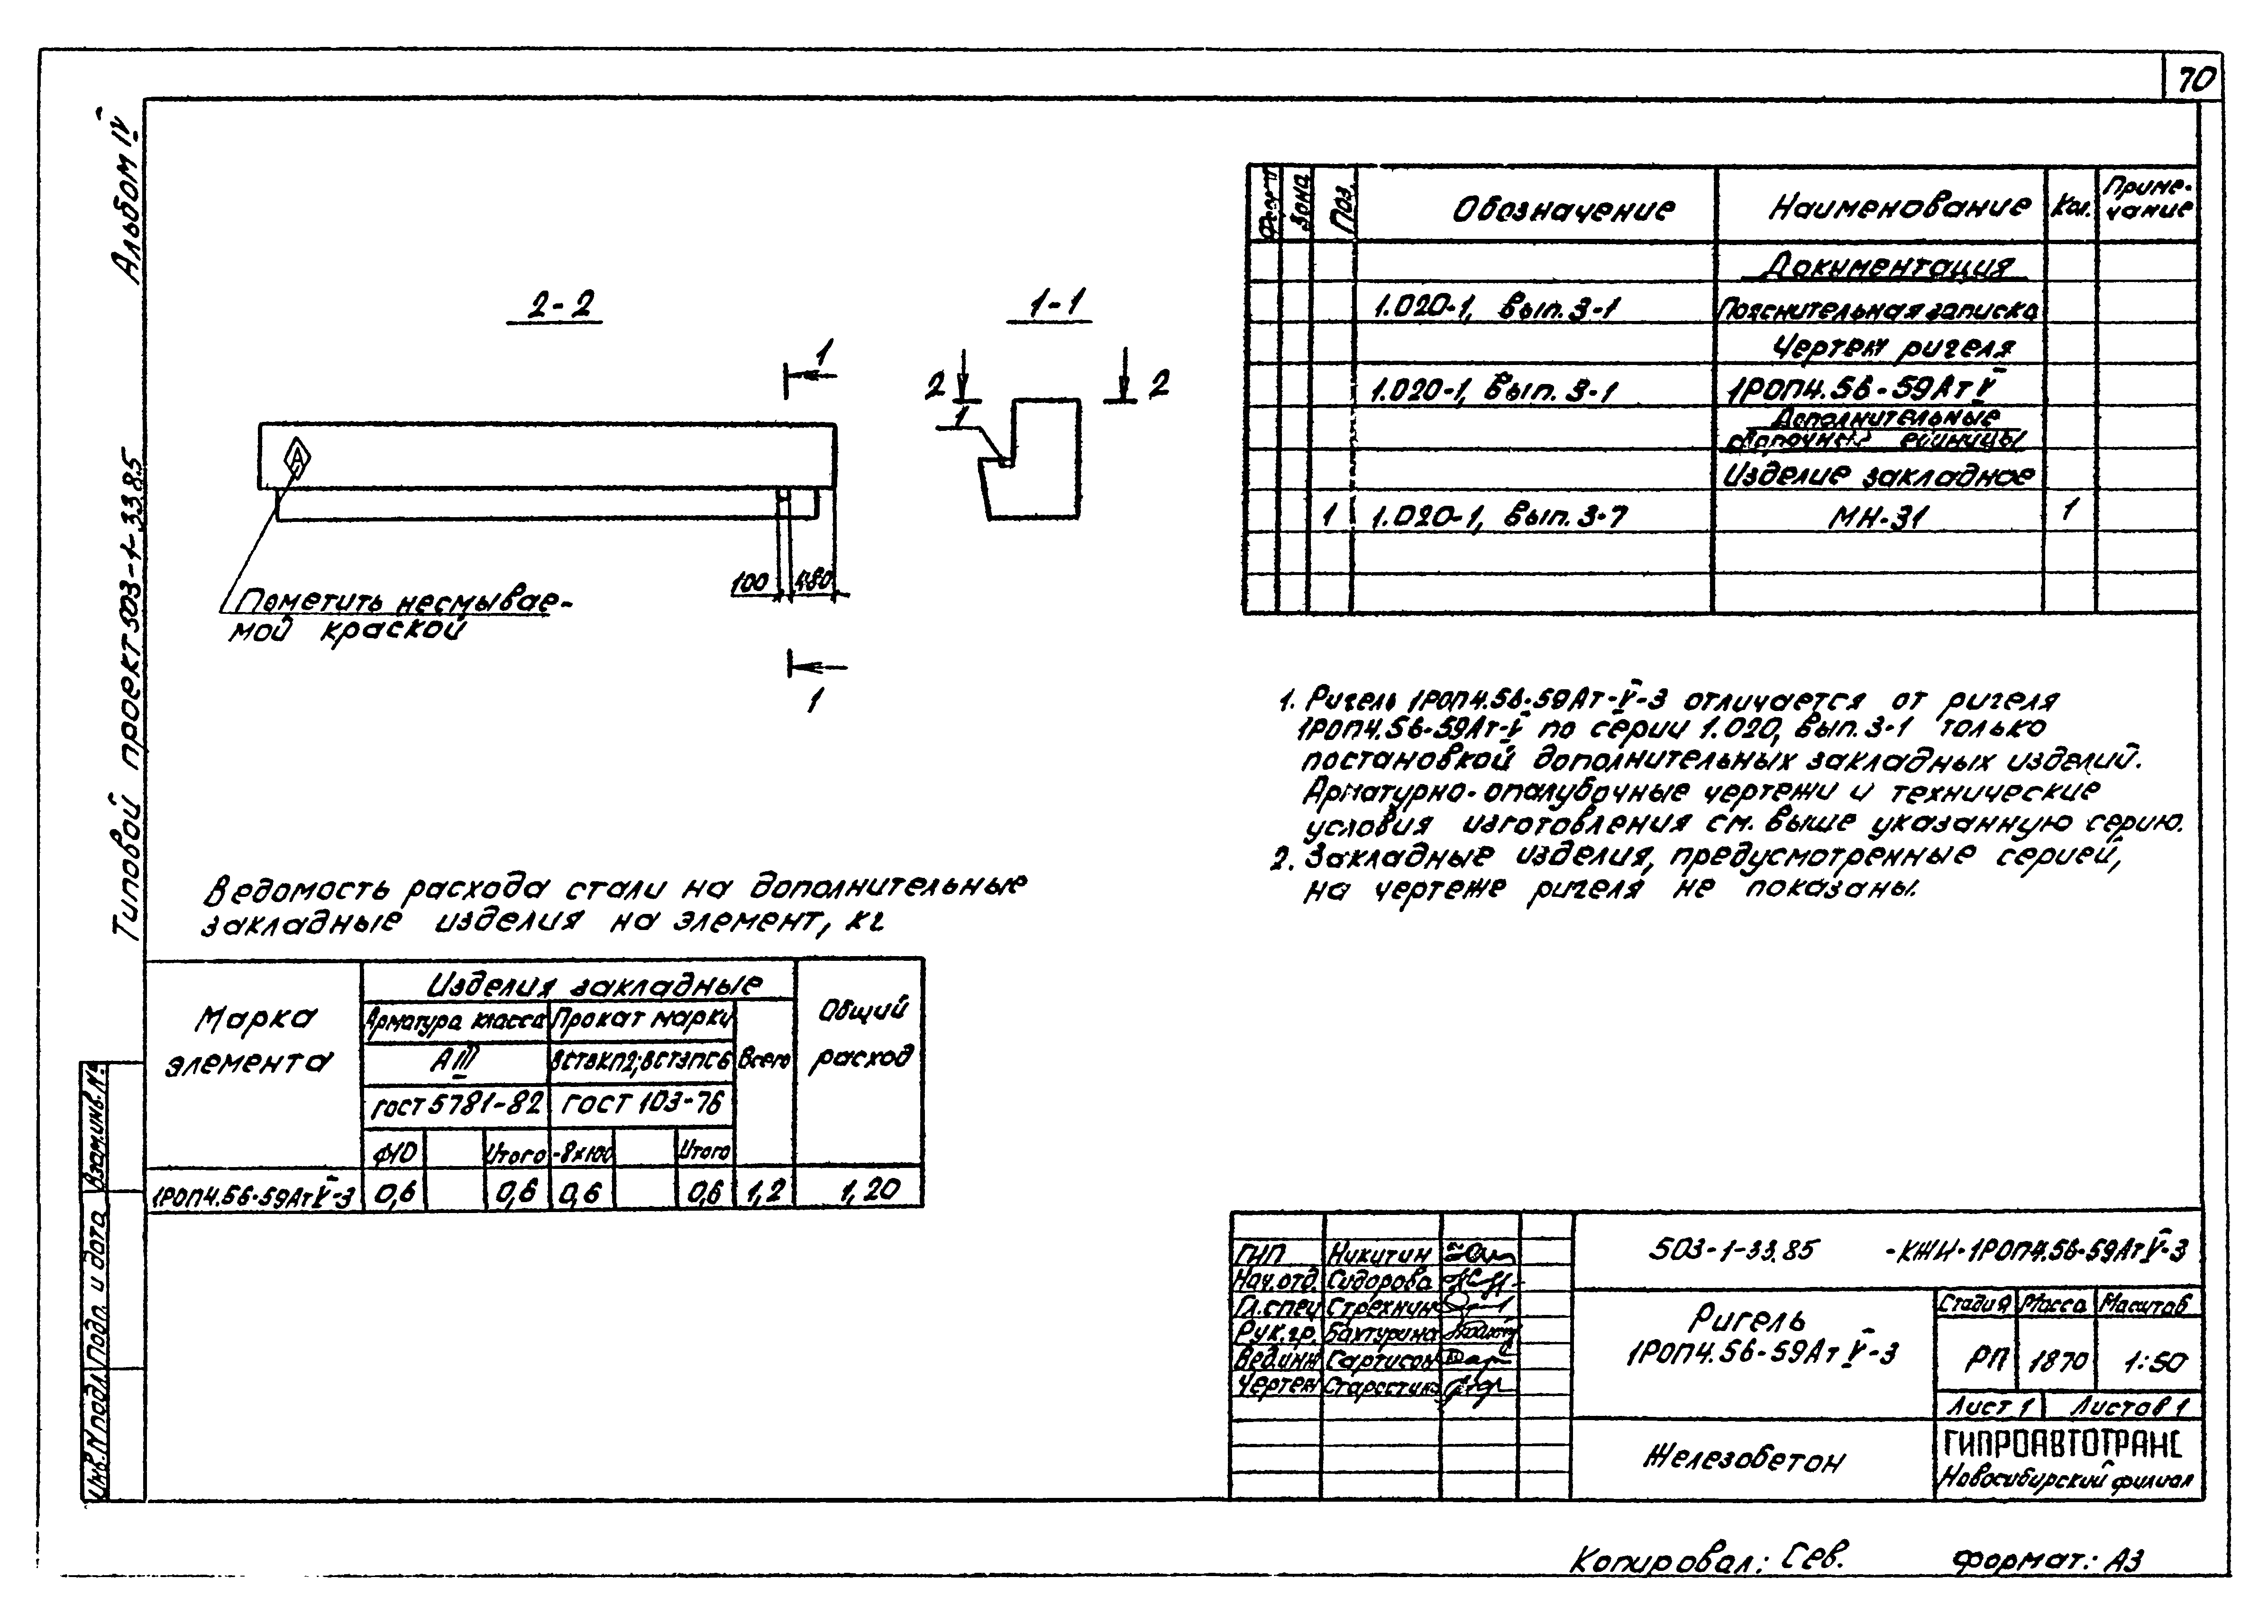 70
Альбом IV
Типовой проект 503-1-33.85
2-2
1
А
Пометить несмывае-
мой краской
100 480
1
1-1
2 2
1
Форм. Зона Поз. Обозначение Наименование Кол. Приме-
чание
Документация
1.020-1, вып. 3-1 Пояснительная записка
Чертеж ригеля
1.020-1, вып. 3-1 1РОП4.56-59АтV
Дополнительные
сборочные единицы
Изделие закладное
1 1.020-1, вып. 3-7 МН-31 1
1. Ригель 1РОП4.56-59Ат-V-3 отличается от ригеля
1РОП4.56-59Ат-V по серии 1.020, вып. 3-1 только
постановкой дополнительных закладных изделий.
Арматурно-опалубочные чертежи и технические
условия изготовления см. выше указанную серию.
2. Закладные изделия, предусмотренные серией,
на чертеже ригеля не показаны.
Ведомость расхода стали на дополнительные
закладные изделия на элемент, кг
Марка
элемента
Изделия закладные
Общий
расход
Арматура класса Прокат марки
АIII ВСт3КП2; ВСт3ПС6 Всего
ГОСТ 5781-82 ГОСТ 103-76
Ф10 Итого -8х100 Итого
1РОП4.56-59АтV-3 0,6 0,6 0,6 0,6 1,2 1,20
Взам.инв.№
Подп. и дата
Инв.№подл.
ГИП Никитин
Нач.отд. Сидорова
Гл.спец Стрехнин
Рук.гр. Бахтурина
Вед.инж Сартисон
Чертеж Старостина
503-1-33.85 -КЖИ-1РОП4.56-59АтV-3
Ригель
1РОП4.56-59АтV-3
Стадия Масса Масштаб
РП 1870 1:50
Лист 1 Листов 1
Железобетон
ГИПРОАВТОТРАНС
Новосибирский филиал
Копировал: Сев. Формат: А3